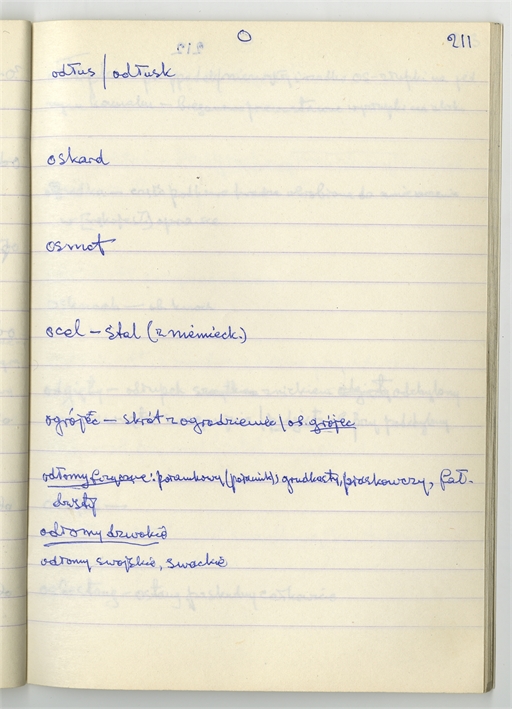 O 211
odłus / odłusk
oskard
osmot
ocel – stal (z niemieck.)
ogrójec – skrót z ogrodzieniec / os grójec
odłomy fizyczne: poranikowy (poranik), grudkosty, piaskowczy, fał-
drsty
odłomy dzwokie
odłomy swojskie, swackie